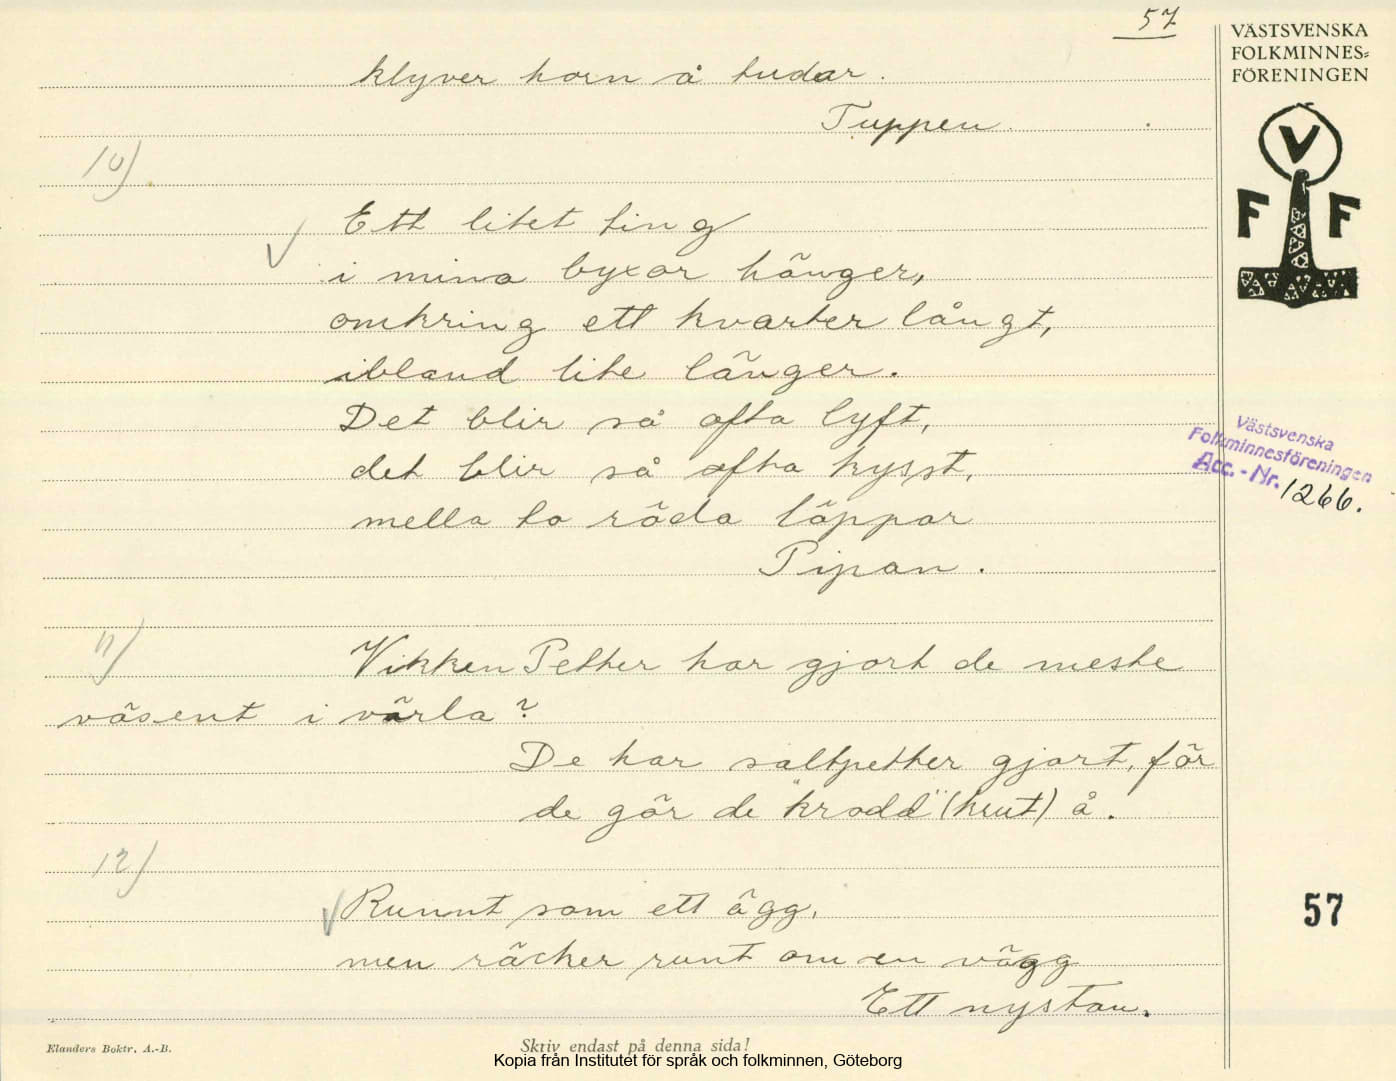 57
VÄSTSVENSKA
FOLKMINNES=
FÖRENINGEN
V
F F
klyver horn å tudar.
Tuppen.
10)
Ett litet ting
i mina byxor hänger,
omkring ett kvarter långt,
ibland lite länger.
Det blir så ofta lyft,
det blir så ofta kysst,
mella to röda läppar
Pipan.
Västsvenska
Folkminnesföreningen
Acc.-Nr. 1266.
11)
Vikken Petter har gjort de meste
väsent i värla?
De har saltpetter gjort, för
de gör de "krodd" (krut) å.
12)
Runnt som ett ägg,
men räcker runt om en vägg
Ett nystan.
57
Elanders Boktr. A.-B.
Skriv endast på denna sida!
Kopia från Institutet för språk och folkminnen, Göteborg